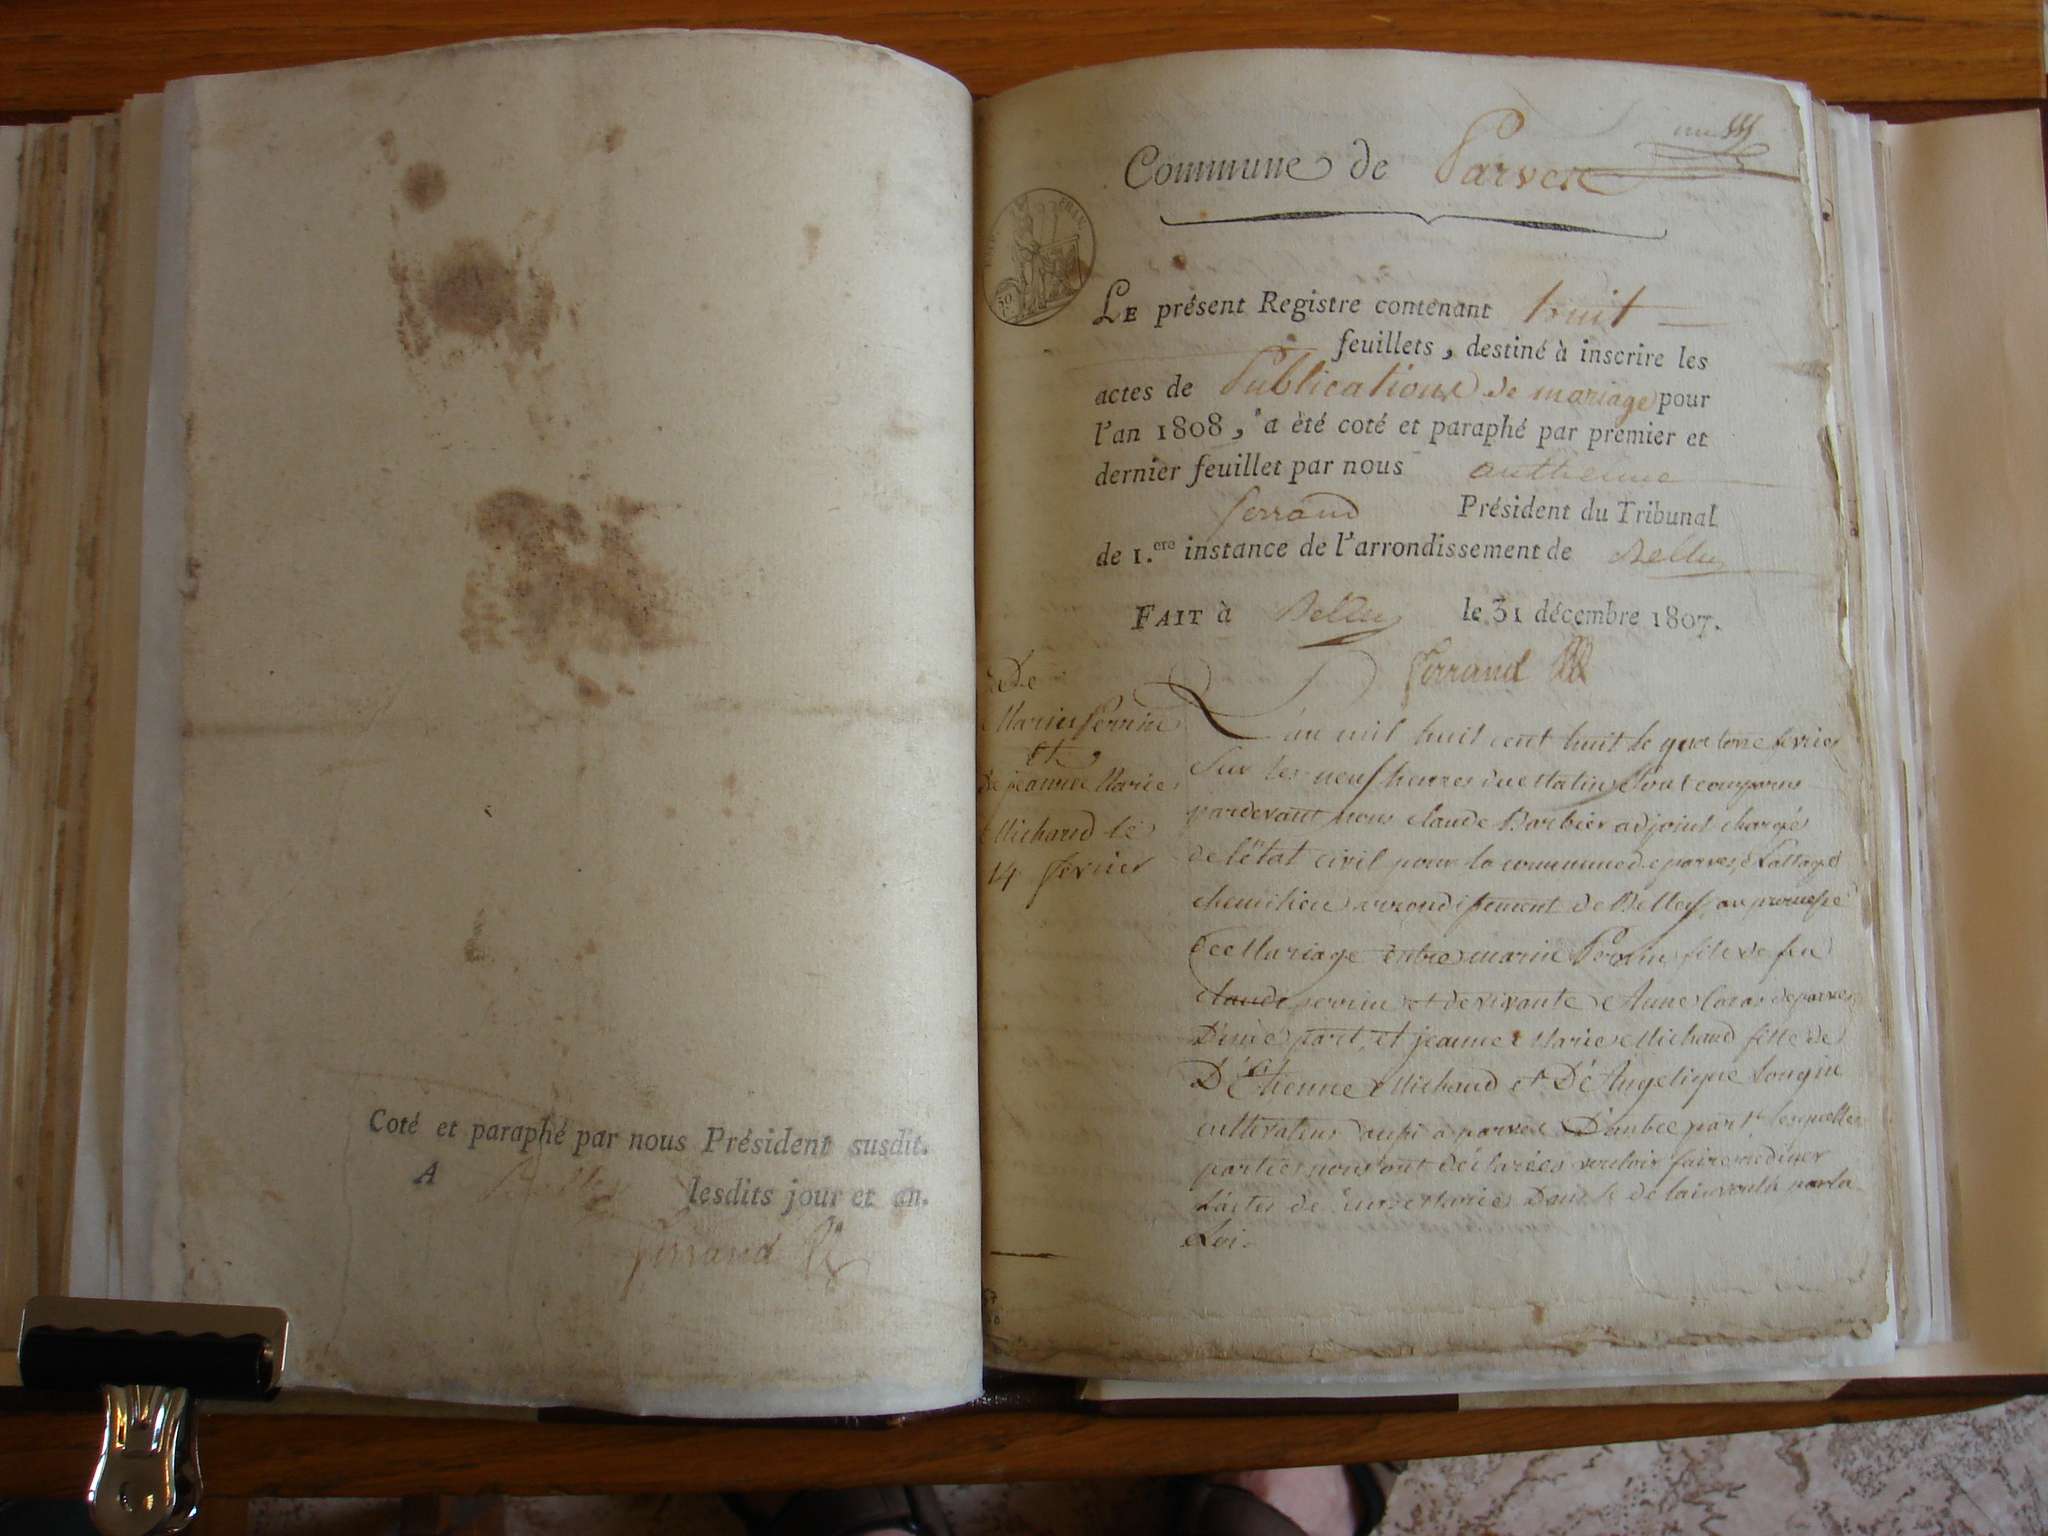 Coté et paraphé par nous Président susdit.
A Belley lesdits jour et an.
Ferrand
Commune de Parves
Le présent Registre contenant huit
feuillets, destiné à inscrire les
actes de Publications de mariage pour
l'an 1808, a été coté et paraphé par premier et
dernier feuillet par nous anthelme
ferrand Président du Tribunal
de 1.ere instance de l'arrondissement de Belley
Fait à Belley le 31 décembre 1807.
ferrand
De
Marin Perrin
et
De jeanne Marie
Michaud le
14 fevrier
L'an mil huit cent huit le quatorze fevrier
Sur les neuf heures du Matin Sont comparus
pardevant nous claude Barbier adjoint chargé
de l'état civil pour la commune de parves &
chemilieu arrondissement de Belley, au promesse
de Mariage entre marin Perrin fils de feu
claude perrin et de vivante Anne de parves
D'une part, et jeanne Marie Michaud fille de
D'Etienne Michaud et D'Angelique Longin
cultivateur aussi a parves D'autre part lesquelles
parties nous ont déclarées vouloir faire rediger
L'actes de leur Marie Dans le delai voulu par la
Loi.